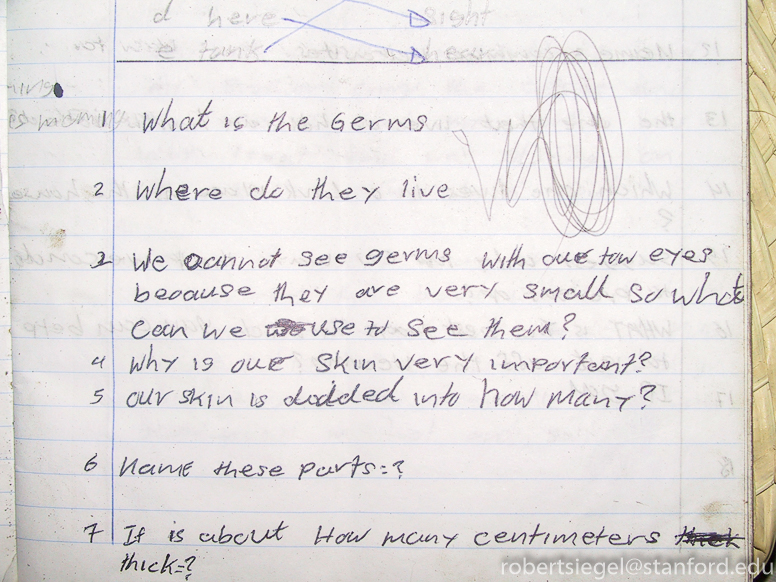 d here Right
e tank
1 What is the Germs
2 Where do they live
3 We cannot see germs with our tow eyes
because they are very small so what
can we use to see them?
4 Why is our skin very important?
5 our skin is dodded into how many?
6 Name these parts:=?
7 It is about How many centimeters thick
thick=?
robertsiegel@stanford.edu